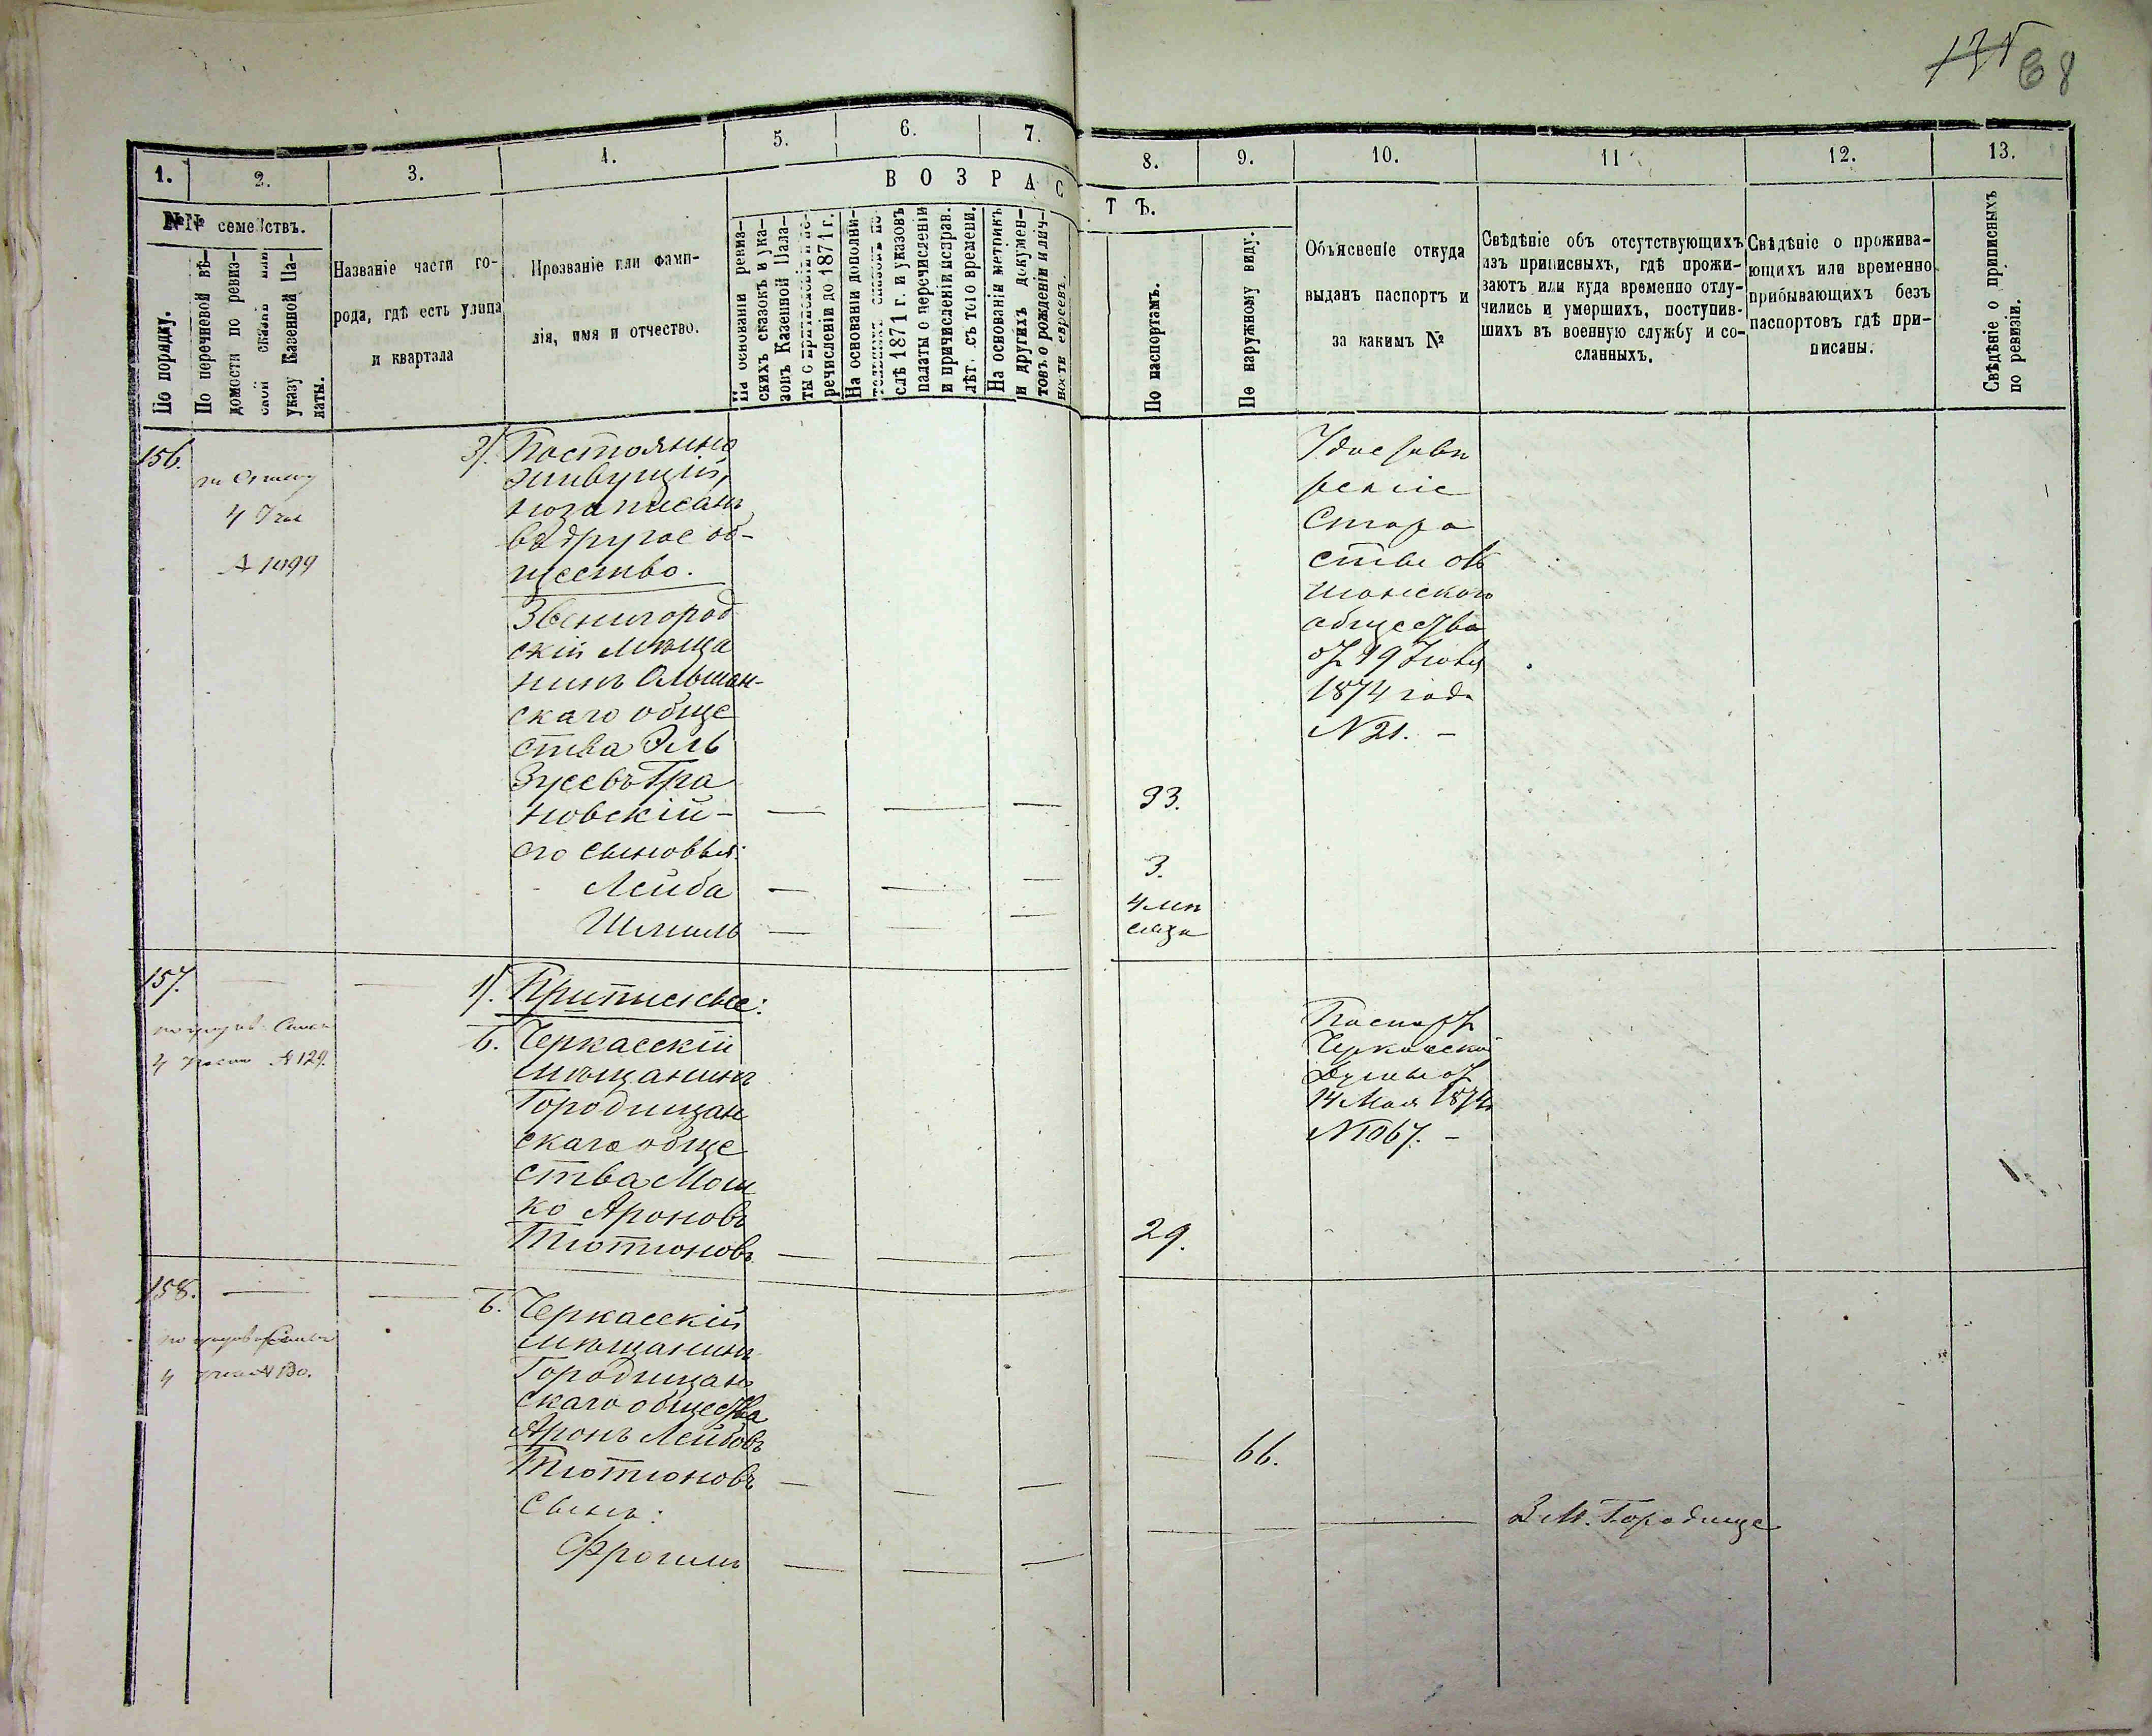 135 68
1.
2.
3.
4.
5.
6.
7.
8.
9.
10.
11
12.
13.
ВОЗРАСТЪ.
№№ семействъ.
По порядку.
По перечневой вѣ-
домости по ревиз-
ской сказкѣ или
указу Казенной Па-
латы.
Названіе части го-
рода, гдѣ есть улица
и квартала
Прозваніе или фами-
лія, имя и отчество.
На основаніи ревиз-
скихъ сказокъ и ука-
зовъ Казенной Пала-
ты о
речисленіи до 1871 г.
На основаніи дополни-
слѣ 1871 г. и указовъ
палаты о перечисленіи
и причисленіи исправ.
лѣт. съ того времени.
На основаніи метрикъ
и другихъ докумен-
товъ о рожденіи и лич-
ности евреевъ.
По паспортамъ.
По наружному виду.
Объясненіе откуда
выданъ паспортъ и
за какимъ №
Свѣдѣніе объ отсутствующихъ
изъ приписныхъ, гдѣ прожи-
ваютъ или куда временно отлу-
чились и умершихъ, поступив-
шихъ въ военную службу и со-
сланныхъ.
Свѣдѣніе о прожива-
ющихъ или временно
прибывающихъ безъ
паспортовъ гдѣ при-
писаны.
Свѣдѣніе о приписныхъ
по ревизіи.
156.
4
№ 1099
3). Постоянно
живущій,
но записанъ
въ другое об-
щество.
Звенигород
скій мѣща
нинъ Ольшан-
скаго обще
ства Эль
Зусевъ Гра
новскій -
его сыновья:
Лейба
Шмиль
33.
3.
4 мѣ
сяца
Удостовѣ
реніе
Старо
сты Оль
шанскаго
общества
от 19 Іюня
1874 года
№ 21. -
157.
4 части № 129.
1). Приписные:
Б. Черкасскій
мѣщанинъ
Городищан
скаго обще
ства Мош
ко Ароновъ
Тютюновъ
29.
Паспорт
Черкасской
Думы от
14 Мая 1874
№ 1067. -
158.
4 № 130.
Б. Черкасскій
мѣщанинъ
Городищан
скаго общества
Аронъ Лейбовъ
Тютюновъ
Сынъ:
Фроимъ
66.
В м. Городище